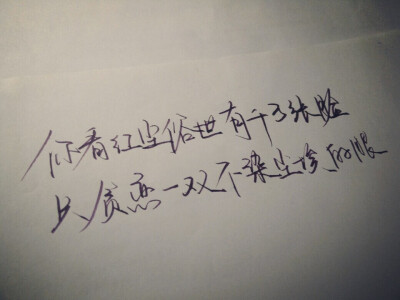 你看红尘俗世有千万张脸
只贪恋一双不染尘埃的眼